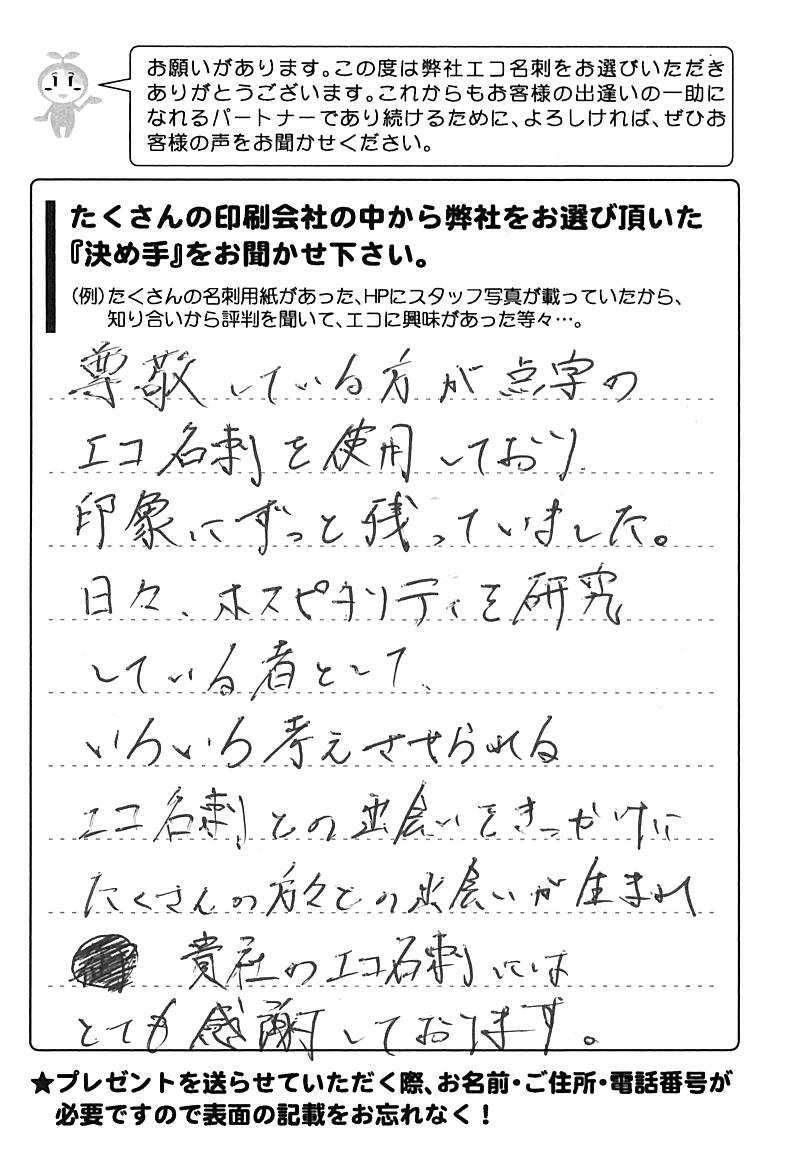 お願いがあります。この度は弊社エコ名刺をお選びいただき
ありがとうございます。これからもお客様の出逢いの一助に
なれるパートナーであり続けるために、よろしければ、ぜひお
客様の声をお聞かせください。
たくさんの印刷会社の中から弊社をお選び頂いた
『決め手』をお聞かせ下さい。
(例)たくさんの名刺用紙があった、HPにスタッフ写真が載っていたから、
知り合いから評判を聞いて、エコに興味があった等々…。
尊敬している方が点字の
エコ名刺を使用しており
印象にずっと残っていました。
日々、ホスピタリティを研究
している者として、
いろいろ考えさせられる
エコ名刺との出会いをきっかけに
たくさんの方々との出会いが生まれ
貴社のエコ名刺には
とても感謝しております。
★プレゼントを送らせていただく際、お名前・ご住所・電話番号が
必要ですので表面の記載をお忘れなく!